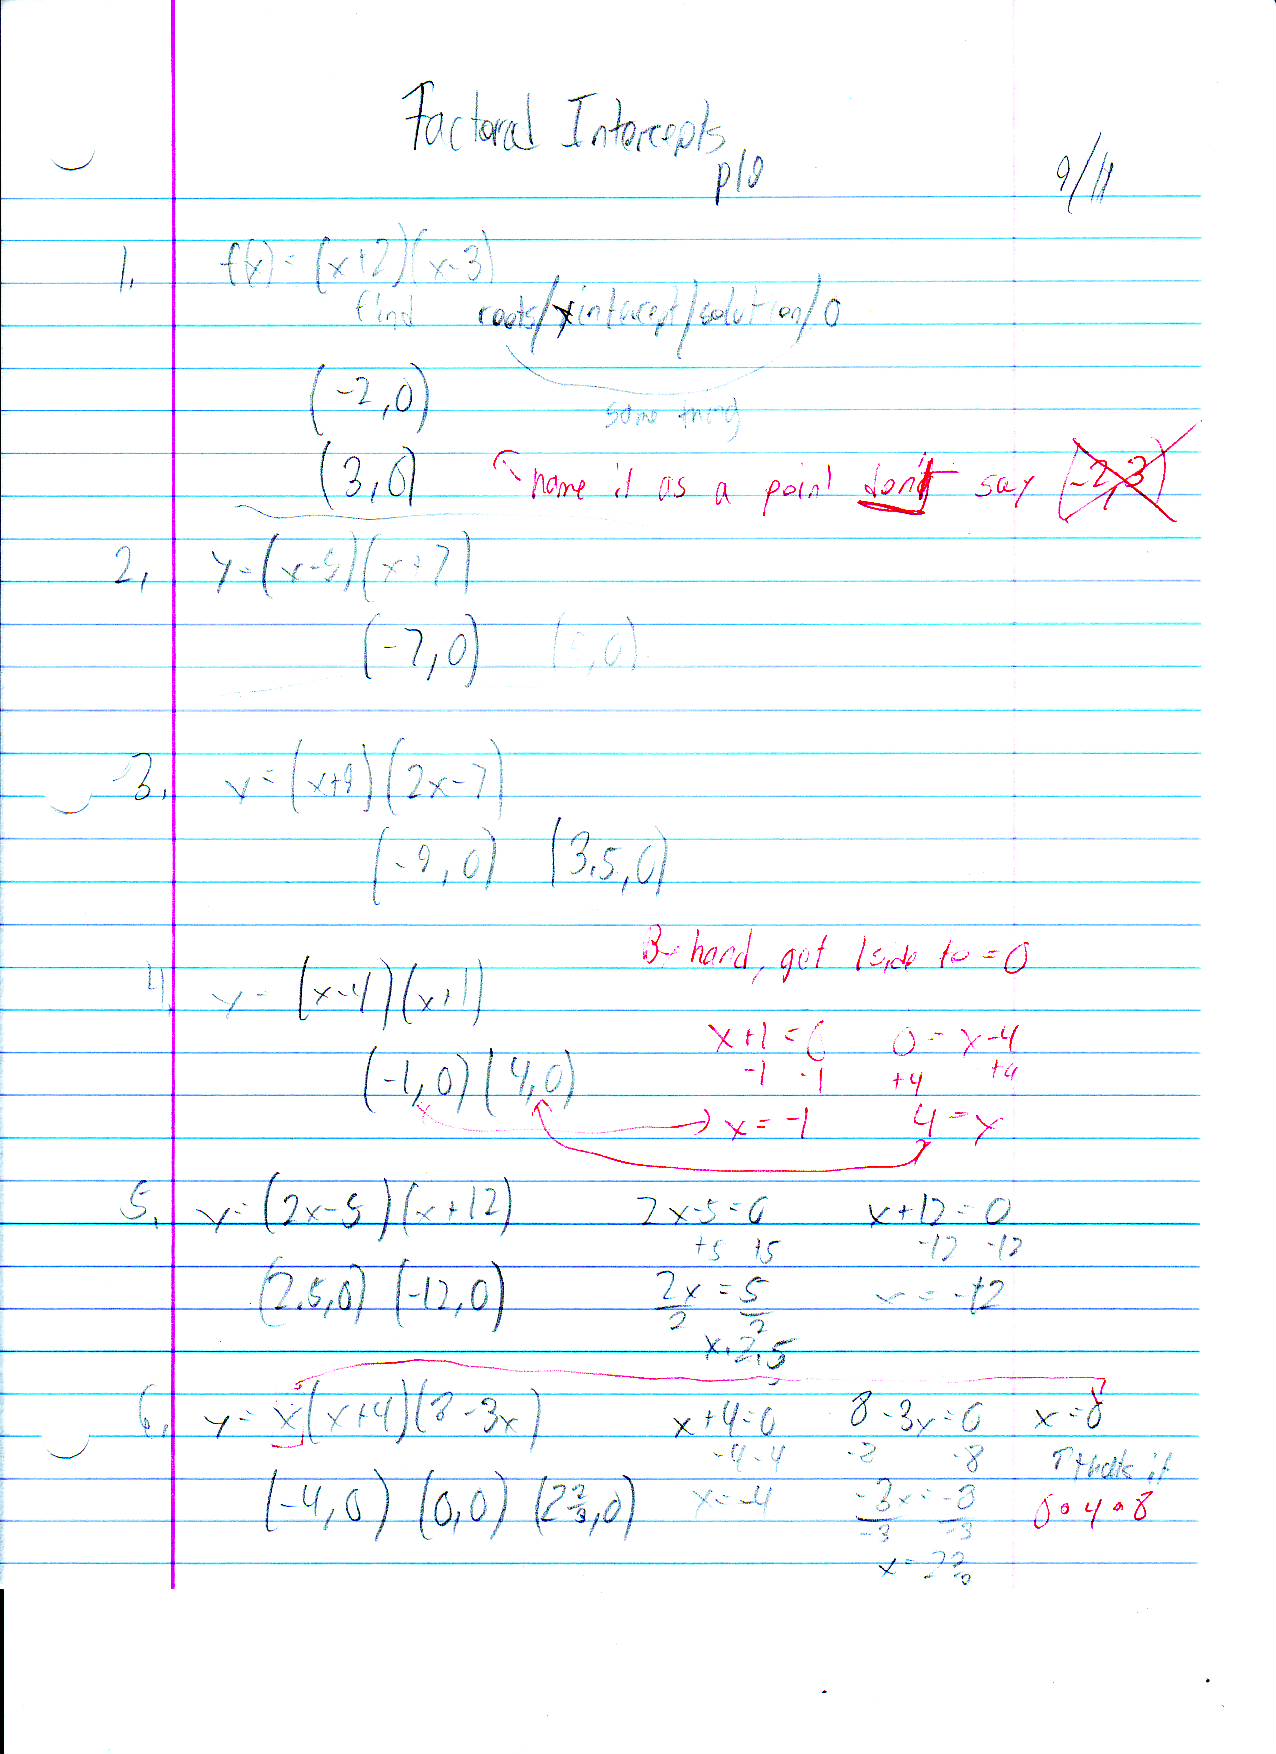 Factoral Intercepts
p10
9/11
1. f(x) = (x+2)(x-3)
find roots/xintercept/solution/0
(-2,0)
same thing
(3,0) name it as a point don't say (-2,3)
2. y=(x-5)(x+7)
(-7,0) (5,0)
3. y=(x+9)(2x-7)
(-9,0) (3.5,0)
By hand, get 1 side to =0
4. y= (x-4)(x+1)
x+1=0 0=x-4
(-1,0) (4,0) -1 -1 +4 +4
x=-1 4=x
5. y=(2x-5)(x+12) 2x-5=0 x+12=0
+5 +5 -12 -12
(2.5,0) (-12,0) 2x=5 x=-12
2 2
x=2.5
6. y= x(x+4)(8-3x) x+4=0 8-3x=0 x=0
-4 -4 -8 -8 ↑thats it
(-4,0) (0,0) (2 2/3,0) x=-4 -3x=-8 0•4•8
-3 -3
x=2 2/3